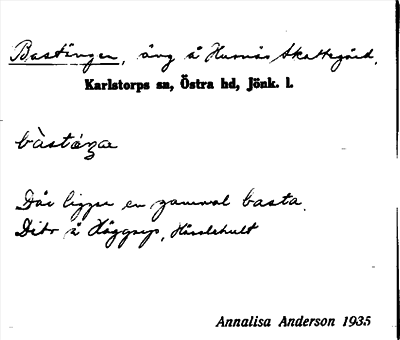 Bastängen, äng å Humås Skattegård,
Karlstorps sn, Östra hd, Jönk. l.
bàstáŋa
Där ligger en gammal basta.
Dito å Häggsryp,
Annalisa Anderson 1935